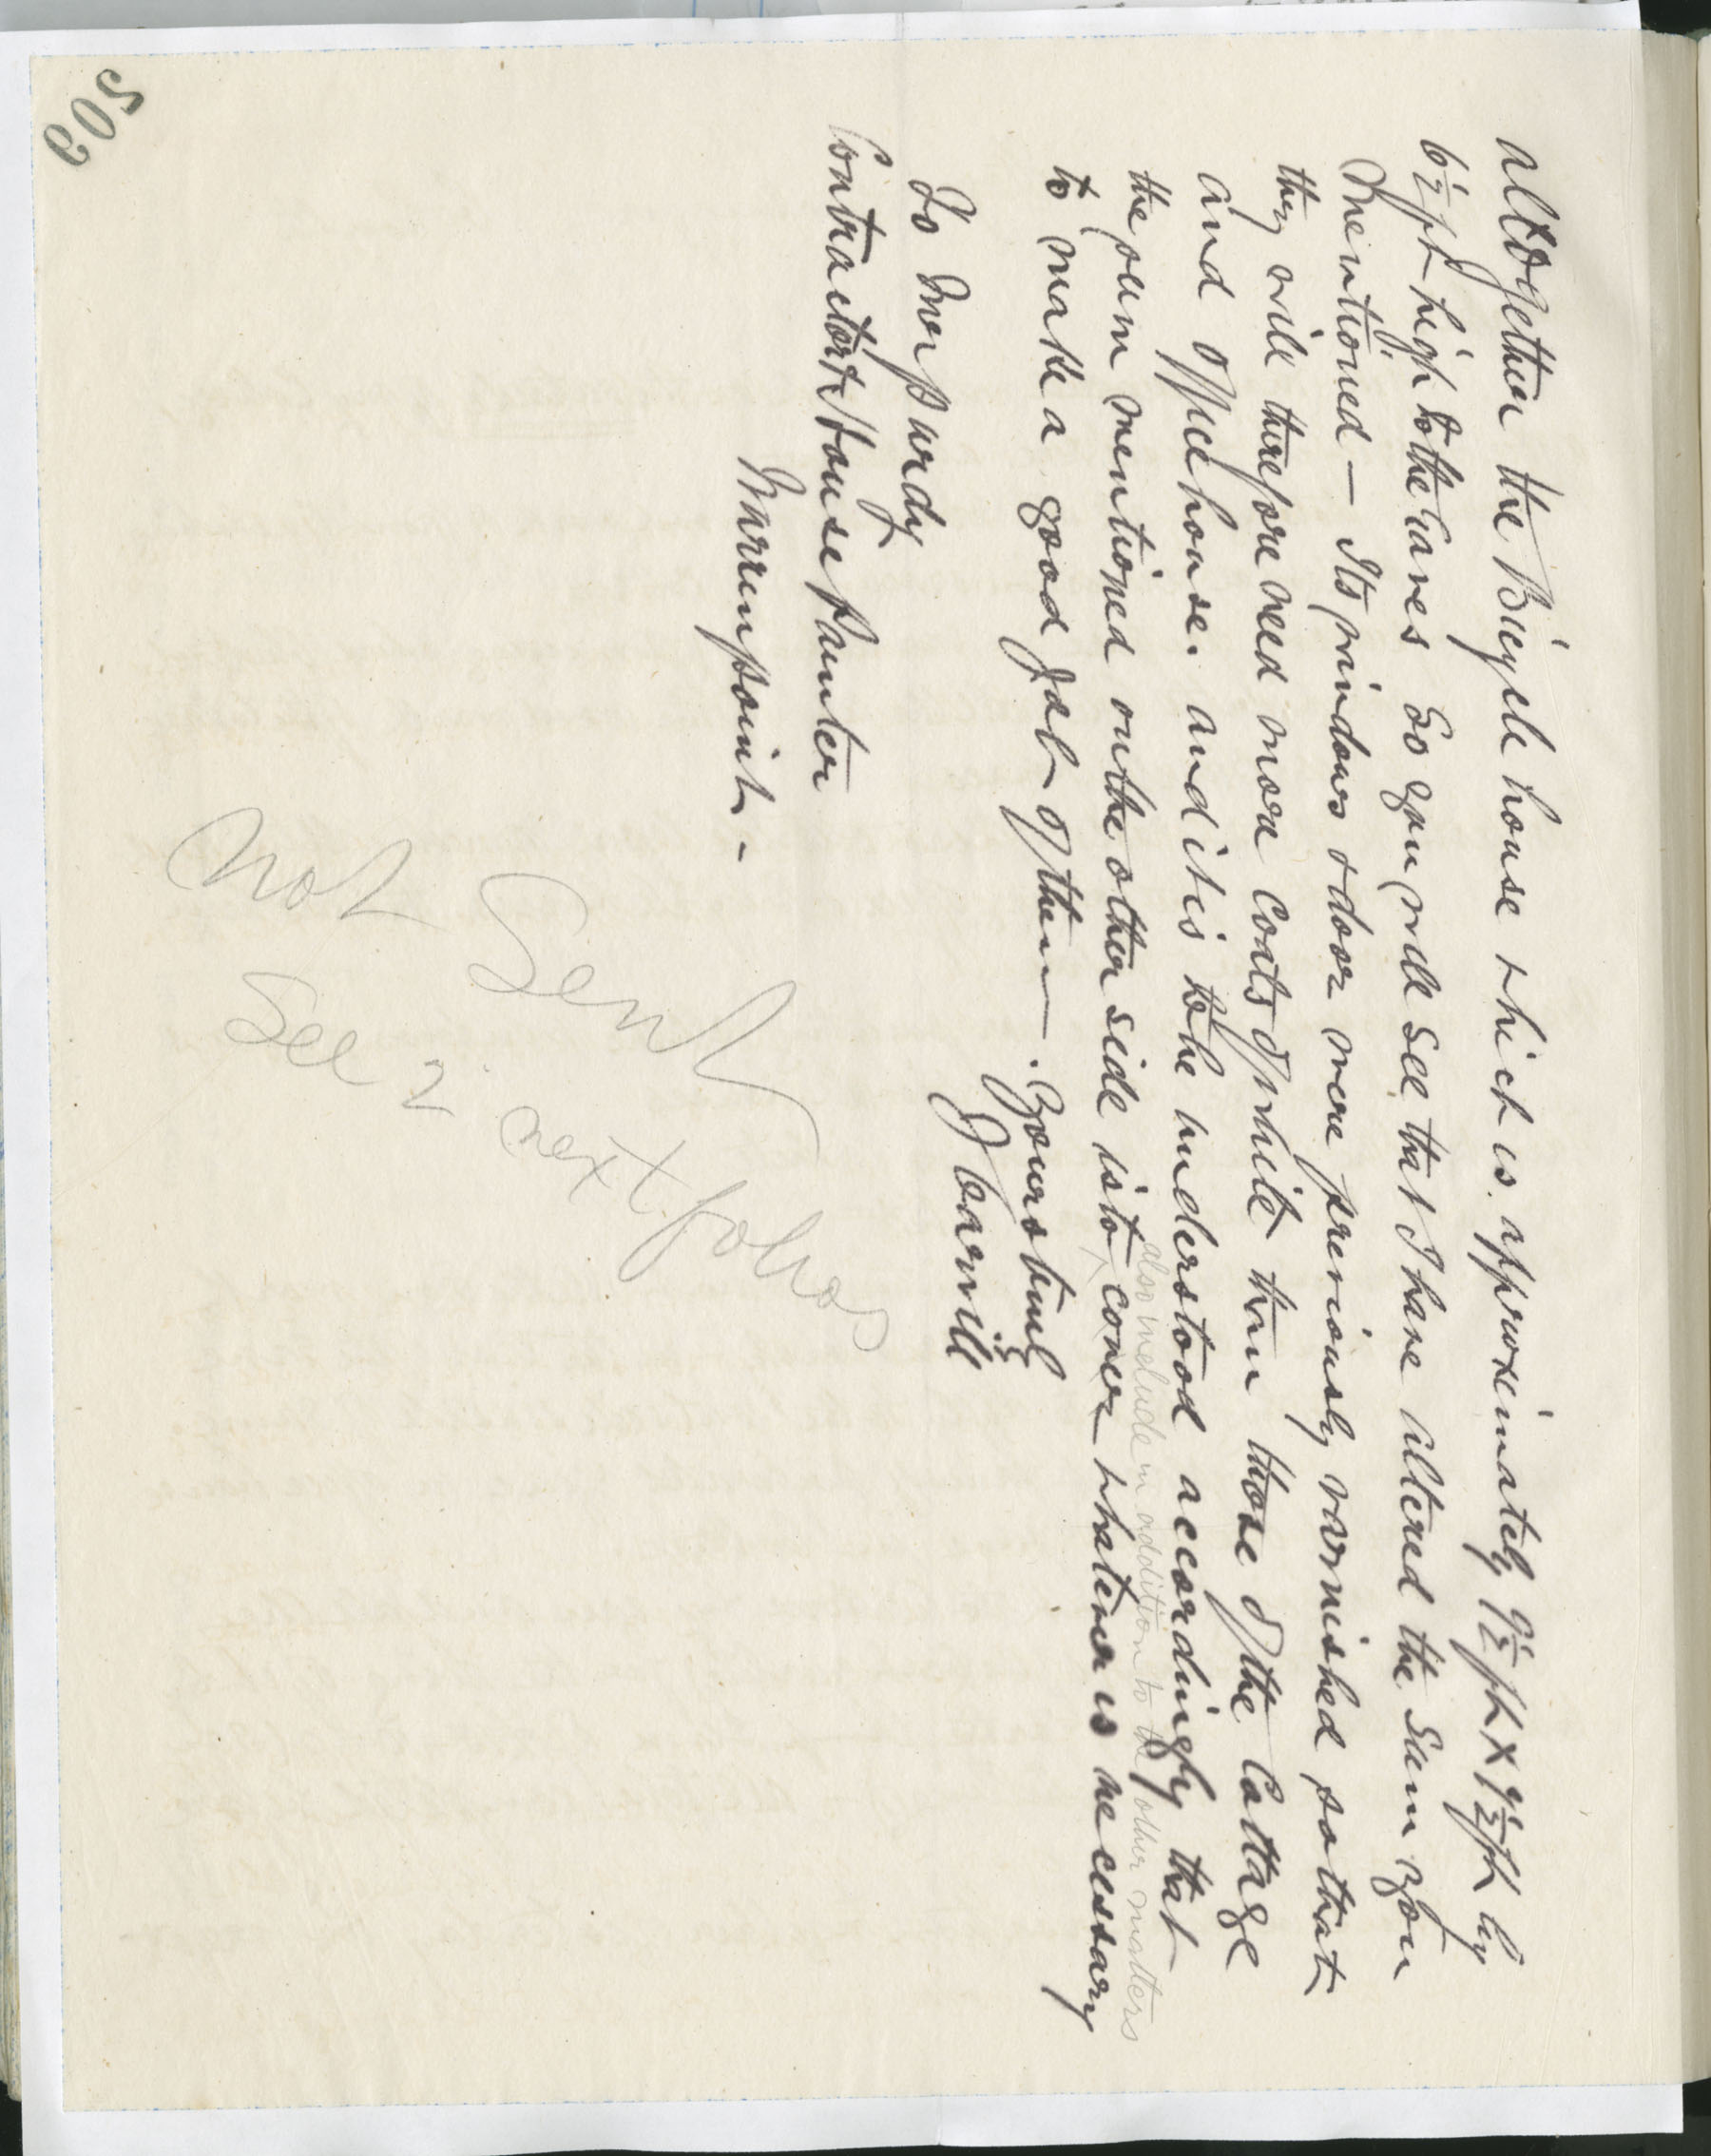 altogether the Bicycle house which is approximately 9½ ft x 9½ ft by
6½ ft high to the Eaves So you will see that I have altered the Sum you
mentioned — Its windows & door were previously varnished so that
they will therefore need more Coats of white than those of the Cottage
and Office house. and it is to be understood accordingly that
also include in addition to the other matters
the sum mentioned on the other side is to cover whatever is necessary
to make a good Job of them —. Yours truly
J Carvill
To Mr Purdy
Contractor & House Painter
Warrenpoint -
Not Sent
See 2 next folios
503